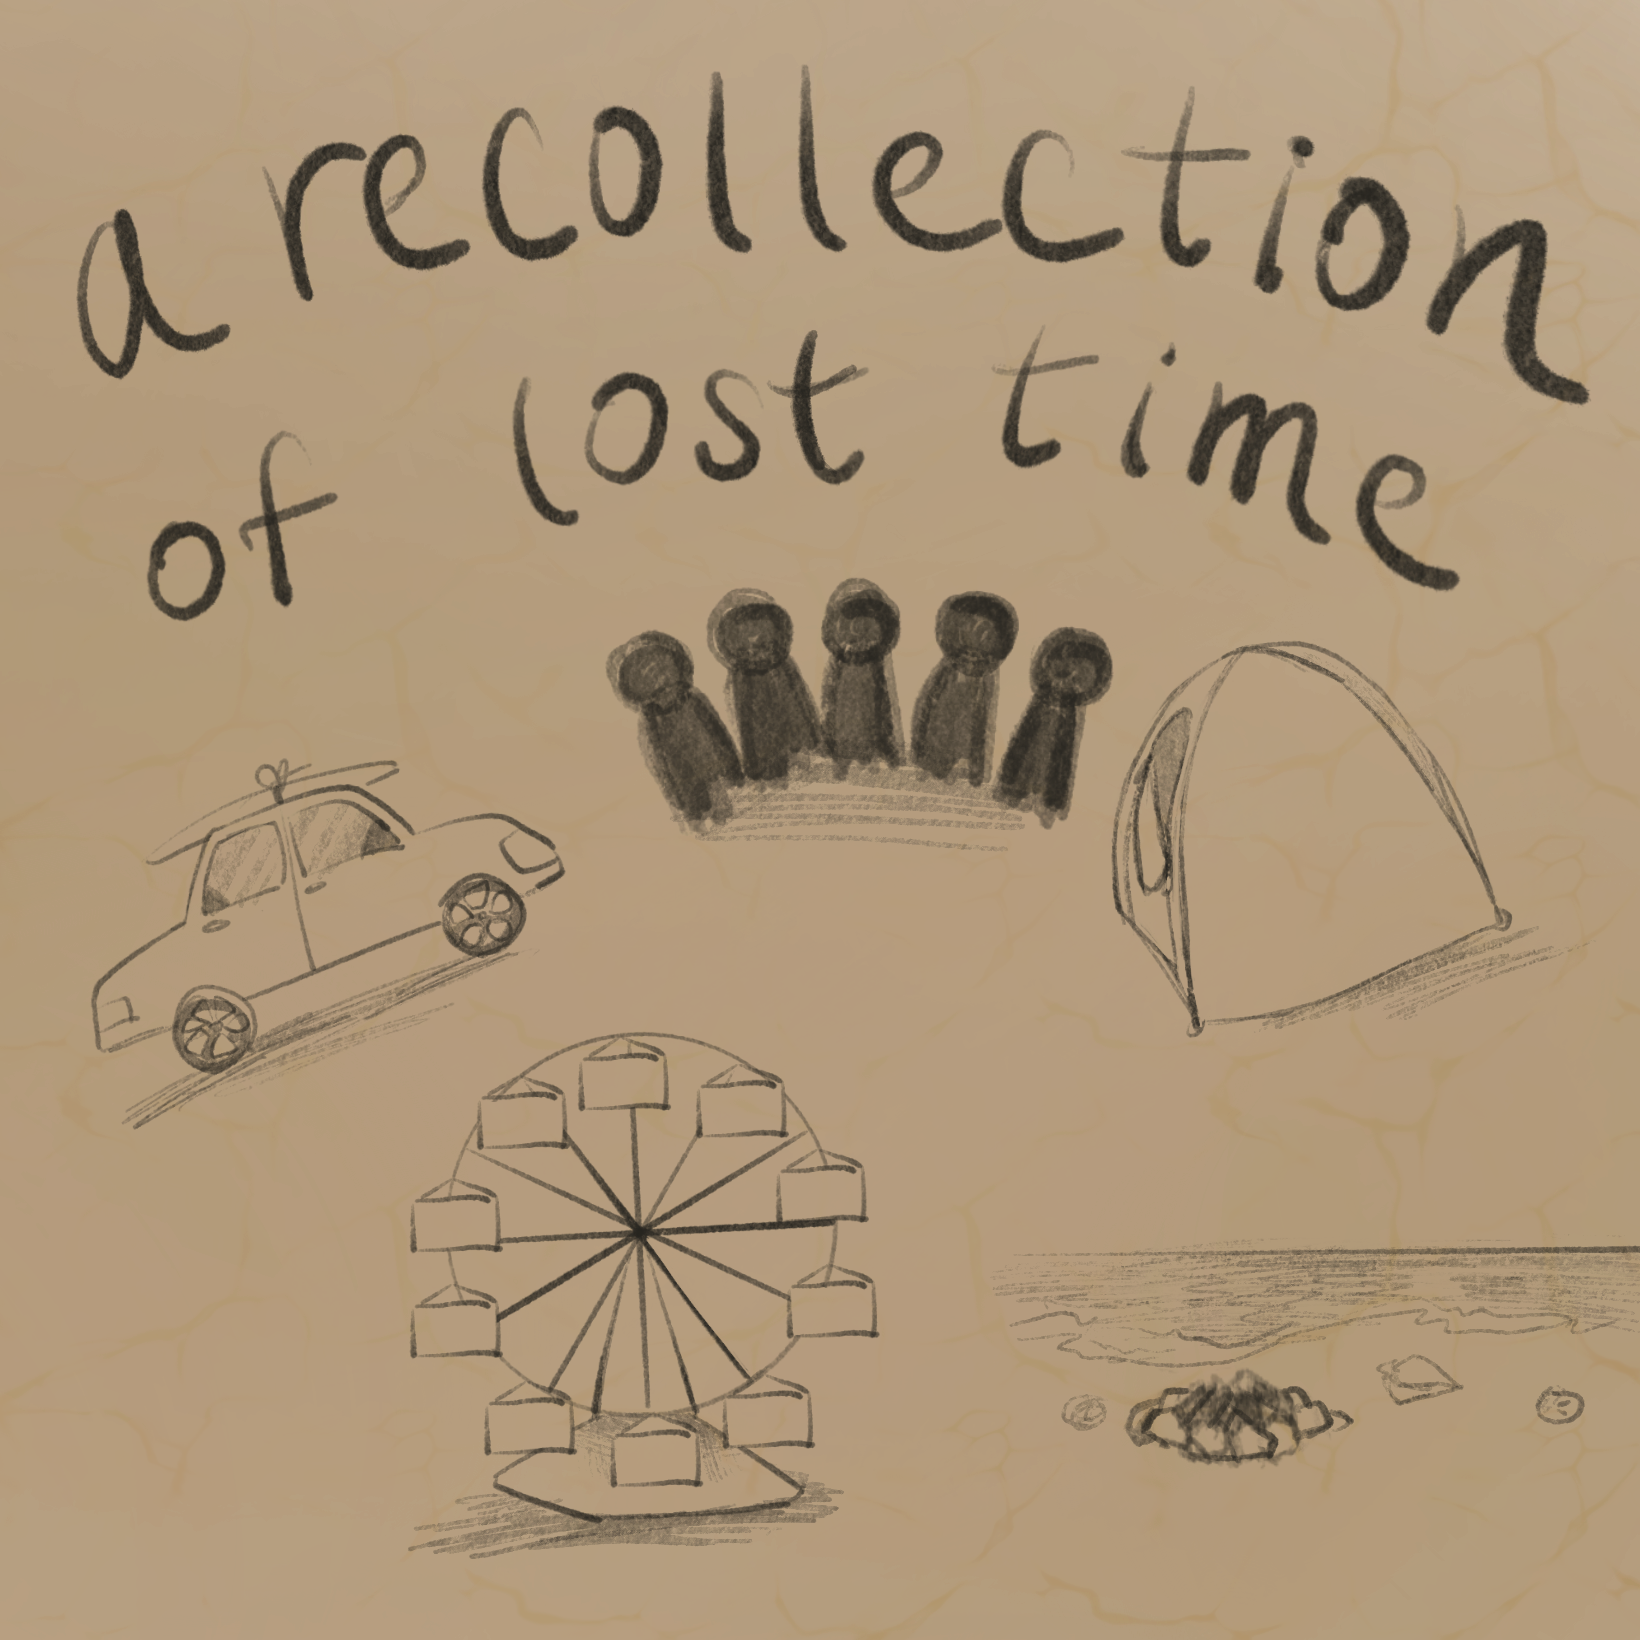 a recollection
of lost time